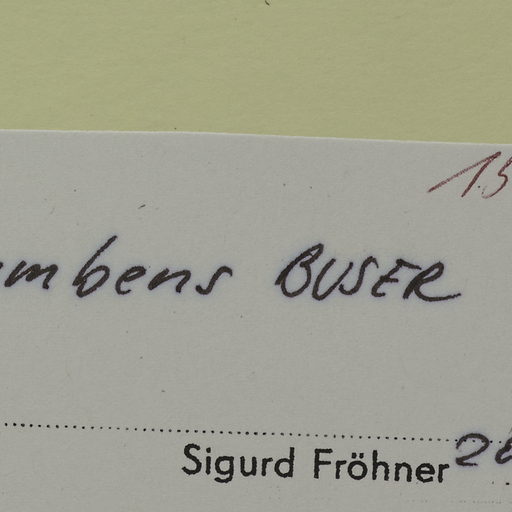 mbens BUSER
Sigurd Fröhner